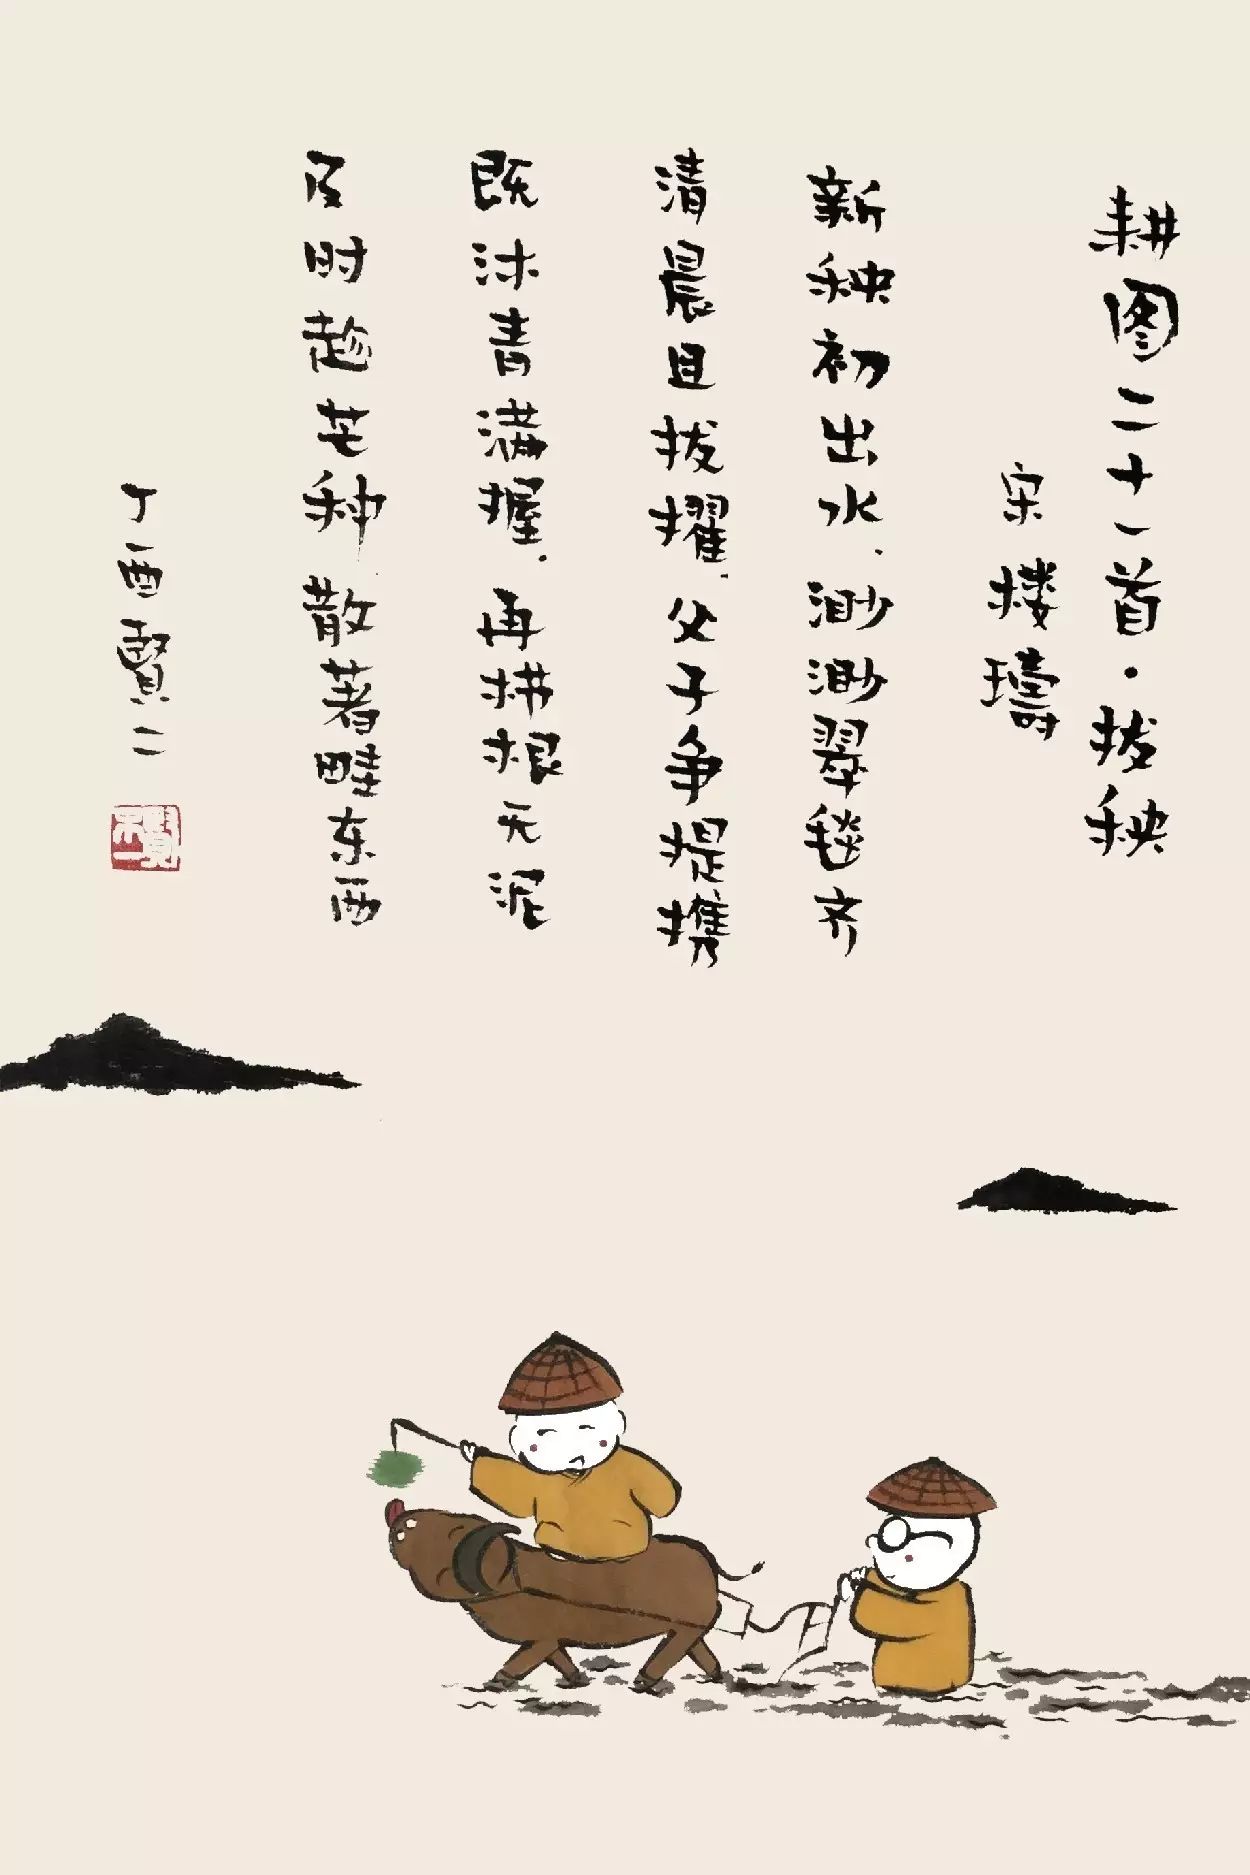 耕图二十一首·拔秧
宋 楼璹
新秧初出水、渺渺翠毯齐
清晨且拔擢、父子争提携
既沐青满握、再栉根无泥
及时趁芒种 散著畦东西
丁酉贤二